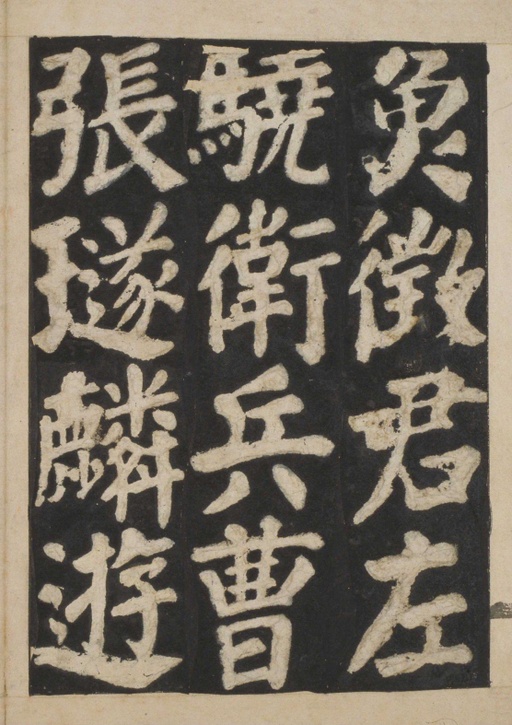 奐徵君左
驍衛兵曹
張璲麟遊